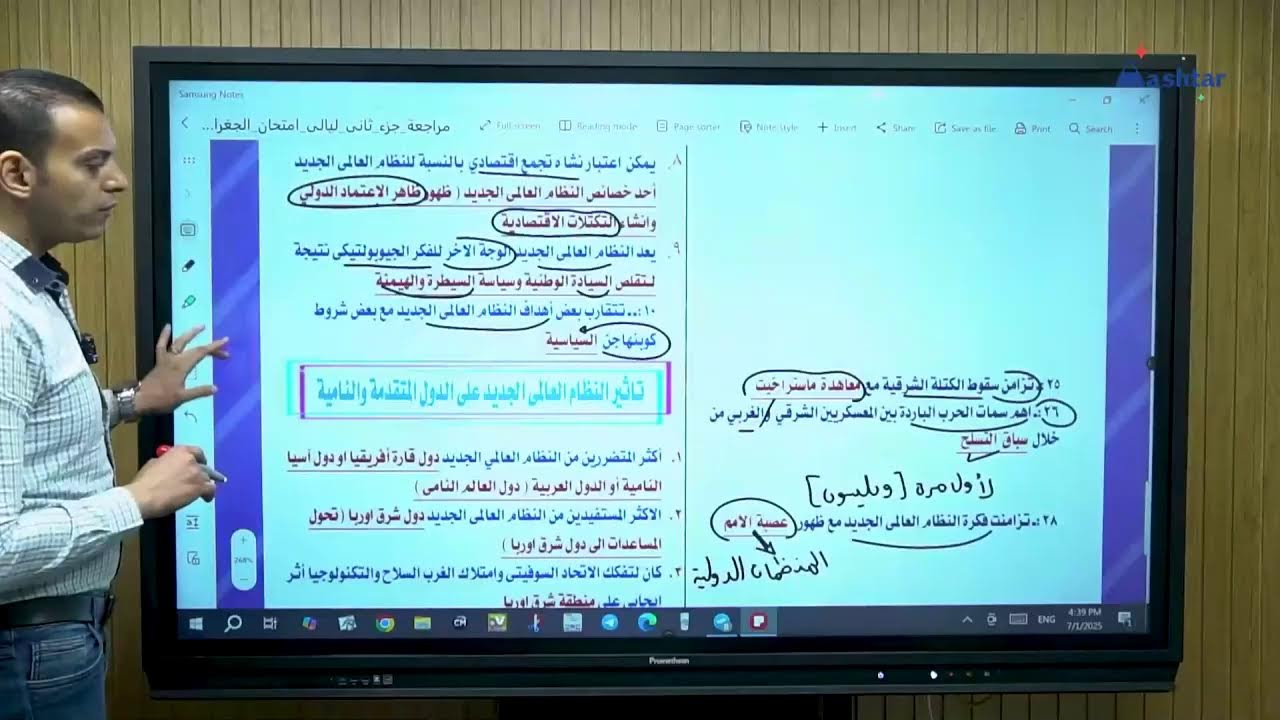 ashtar
Samsung Notes
مراجعة_جزء_ثانى_ليالى_امتحان_الجغرا...
Full screen
Reading mode
Page sorter
Note style
Insert
Share
Save as file
Print
Search
٨. يمكن اعتبار نشاه تجمع اقتصادي بالنسبة للنظام العالمى الجديد
أحد خصائص النظام العالمى الجديد ( ظهور ظاهر الاعتماد الدولي
وانشاء التكتلات الاقتصادية
٩. يعد النظام العالمى الجديد الوجة الاخر للفكر الجيوبولتيكى نتيجة
لتقلص السيادة الوطنية وسياسة السيطرة والهيمنة
١٠ :.. تتقارب بعض أهداف النظام العالمى الجديد مع بعض شروط
كوبنهاجن السياسية
تاثير النظام العالمى الجديد على الدول المتقدمة والنامية
١. أكثر المتضررين من النظام العالمي الجديد دول قارة أفريقيا او دول أسيا
النامية أو الدول العربية ( دول العالم النامى )
٢. الاكثر المستفيدين من النظام العالمى الجديد دول شرق اوربا ( تحول
المساعدات الى دول شرق اوربا )
٣. كان لتفكك الاتحاد السوفيتى وامتلاك الغرب السلاح والتكنولوجيا أثر
ايجابى على منطقة شرق اوربا
٢٥ :. تزامن سقوط الكتلة الشرقية مع معاهدة ماستراخيت
٢٦ :. اهم سمات الحرب الباردة بين المعسكريين الشرقي والغربي من
خلال سباق التسلح
لأول مرة [ويلسون]
٢٨ :. تزامنت فكرة النظام العالمى الجديد مع ظهور عصبة الامم
المنظمات الدولية
268%
4:39 PM
ENG
7/1/2025
Promethean